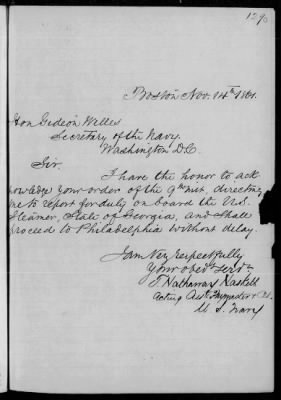 Boston Nov. 14th 1861.
Hon Gideon Welles
Secretary of the Navy.
Washington D.C.
Sir.
I have the honor to ack
nowledge your order of the 9th inst, directing
me to report for duty on board the U.S.
Steamer, State of Georgia, and shall
proceed to Philadelphia without delay.
I am Very respectfully
Your obedt servt
Hathaway Haskell
Acting Asst Paymaster
U. S. Navy